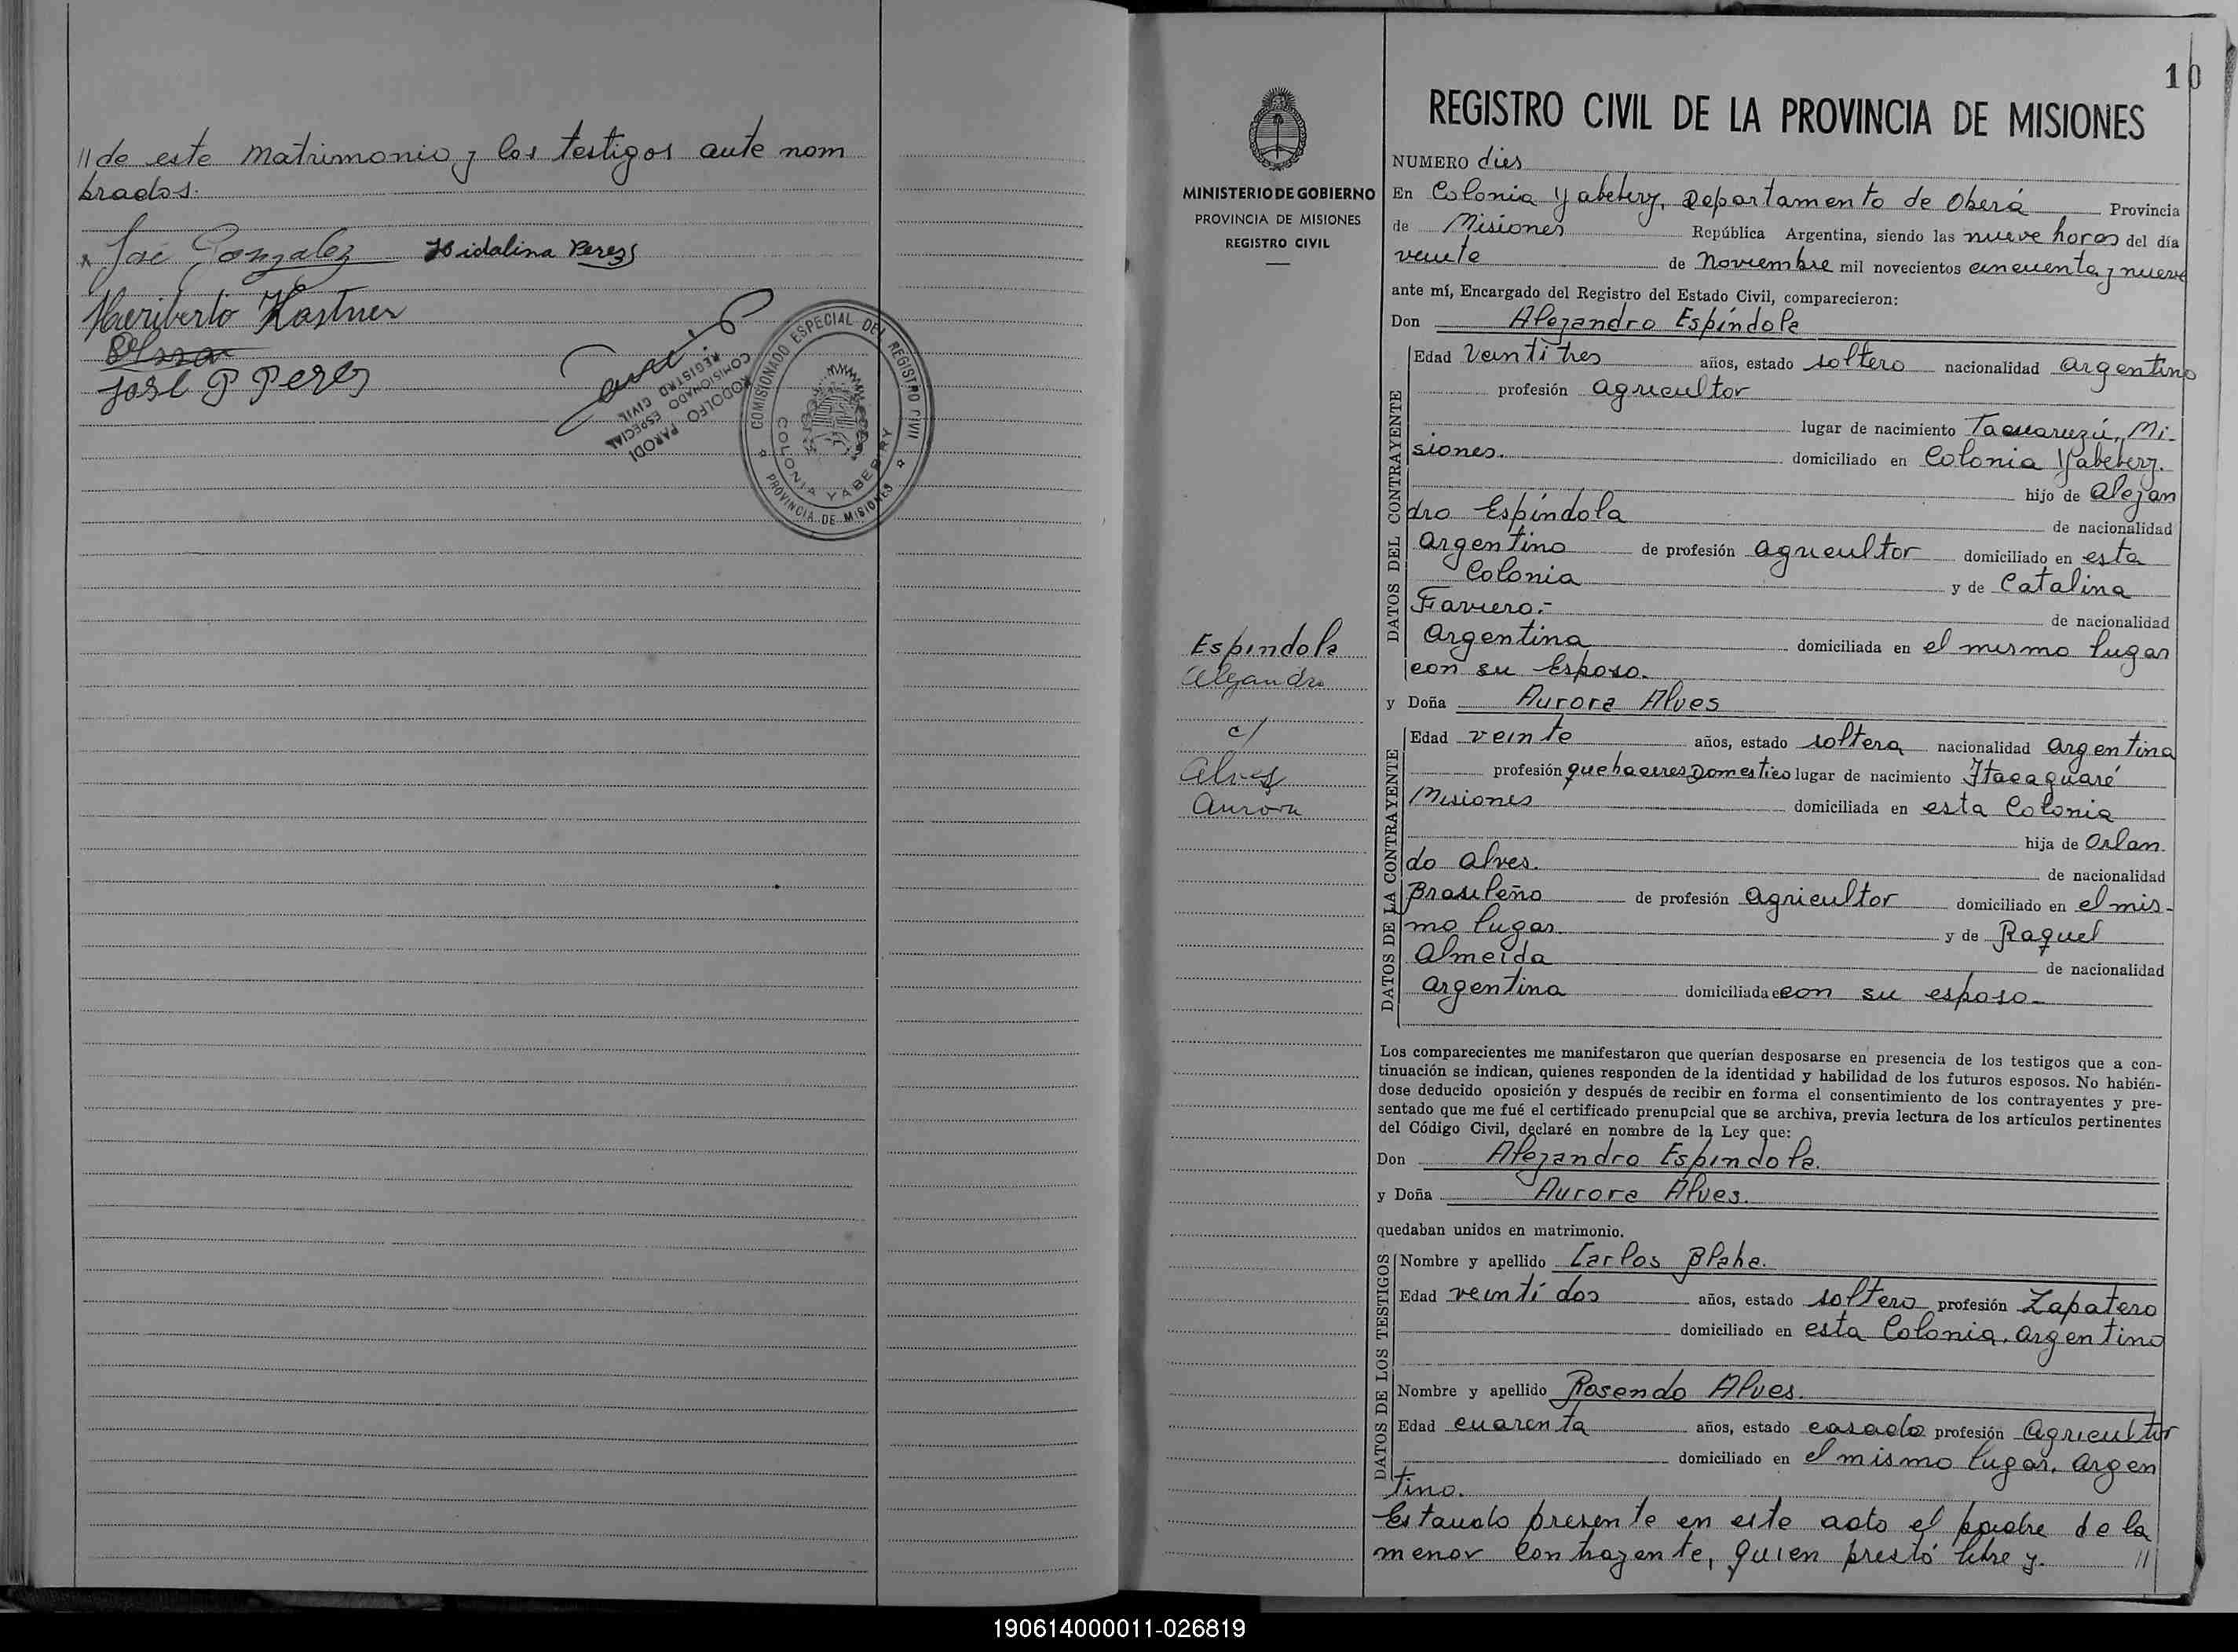 //de este matrimonio y los testigos ante nom
brados.
José Gonzalez Hidalina Perez
Heriberto Kastner
José P Perez
COMISIONADO ESPECIAL DEL REGISTRO CIVIL
COLONIA YABEBIRY
PROVINCIA DE MISIONES
RODOLFO PARODI
COMISIONADO ESPECIAL
REGISTRO CIVIL
10
MINISTERIO DE GOBIERNO
PROVINCIA DE MISIONES
REGISTRO CIVIL
Espindola
Alejandro
c/
Alves
Aurora
REGISTRO CIVIL DE LA PROVINCIA DE MISIONES
NUMERO dies
En Colonia Yabebery, Departamento de Oberá Provincia
de Misiones República Argentina, siendo las nueve horas del día
veinte de Noviembre mil novecientos cincuenta y nueve
ante mí, Encargado del Registro del Estado Civil, comparecieron:
Don Alejandro Espíndola
DATOS DEL CONTRAYENTE
Edad Veintitres años, estado soltero nacionalidad argentino
profesión agricultor
lugar de nacimiento Tacuaruzú, Mi-
siones. domiciliado en Colonia Yabebery.
hijo de Alejan
dro Espíndola
de nacionalidad
argentino de profesión agricultor domiciliado en esta
Colonia y de Catalina
Faviero.-
de nacionalidad
Argentina domiciliada en el mismo lugar
con su Esposo.
y Doña Aurora Alves
DATOS DE LA CONTRAYENTE
Edad veinte años, estado soltera nacionalidad argentina
profesión quehaceres Domestico lugar de nacimiento Itacaguaré
Misiones domiciliada en esta Colonia
hija de Orlan.
do Alves.
de nacionalidad
Brasileño de profesión Agricultor domiciliado en el mis-
mo lugar. y de Raquel
Almeida
de nacionalidad
argentina domiciliada e con su esposo-
Los comparecientes me manifestaron que querían desposarse en presencia de los testigos que a con-
tinuación se indican, quienes responden de la identidad y habilidad de los futuros esposos. No habién-
dose deducido oposición y después de recibir en forma el consentimiento de los contrayentes y pre-
sentado que me fué el certificado prenupcial que se archiva, previa lectura de los artículos pertinentes
del Código Civil, declaré en nombre de la Ley que:
Don Alejandro Espindola.
y Doña Aurora Alves.
quedaban unidos en matrimonio.
DATOS DE LOS TESTIGOS
Nombre y apellido Carlos Blahe.
Edad veinti dos años, estado soltero profesión Zapatero
domiciliado en esta Colonia, argentino
Nombre y apellido Rosendo Alves.
Edad cuarenta años, estado casado profesión Agricultor
domiciliado en el mismo lugar. Argen
tino.
Estando presente en este acto el padre de la
menor contrayente, quien prestó libre y. //
190614000011-026819